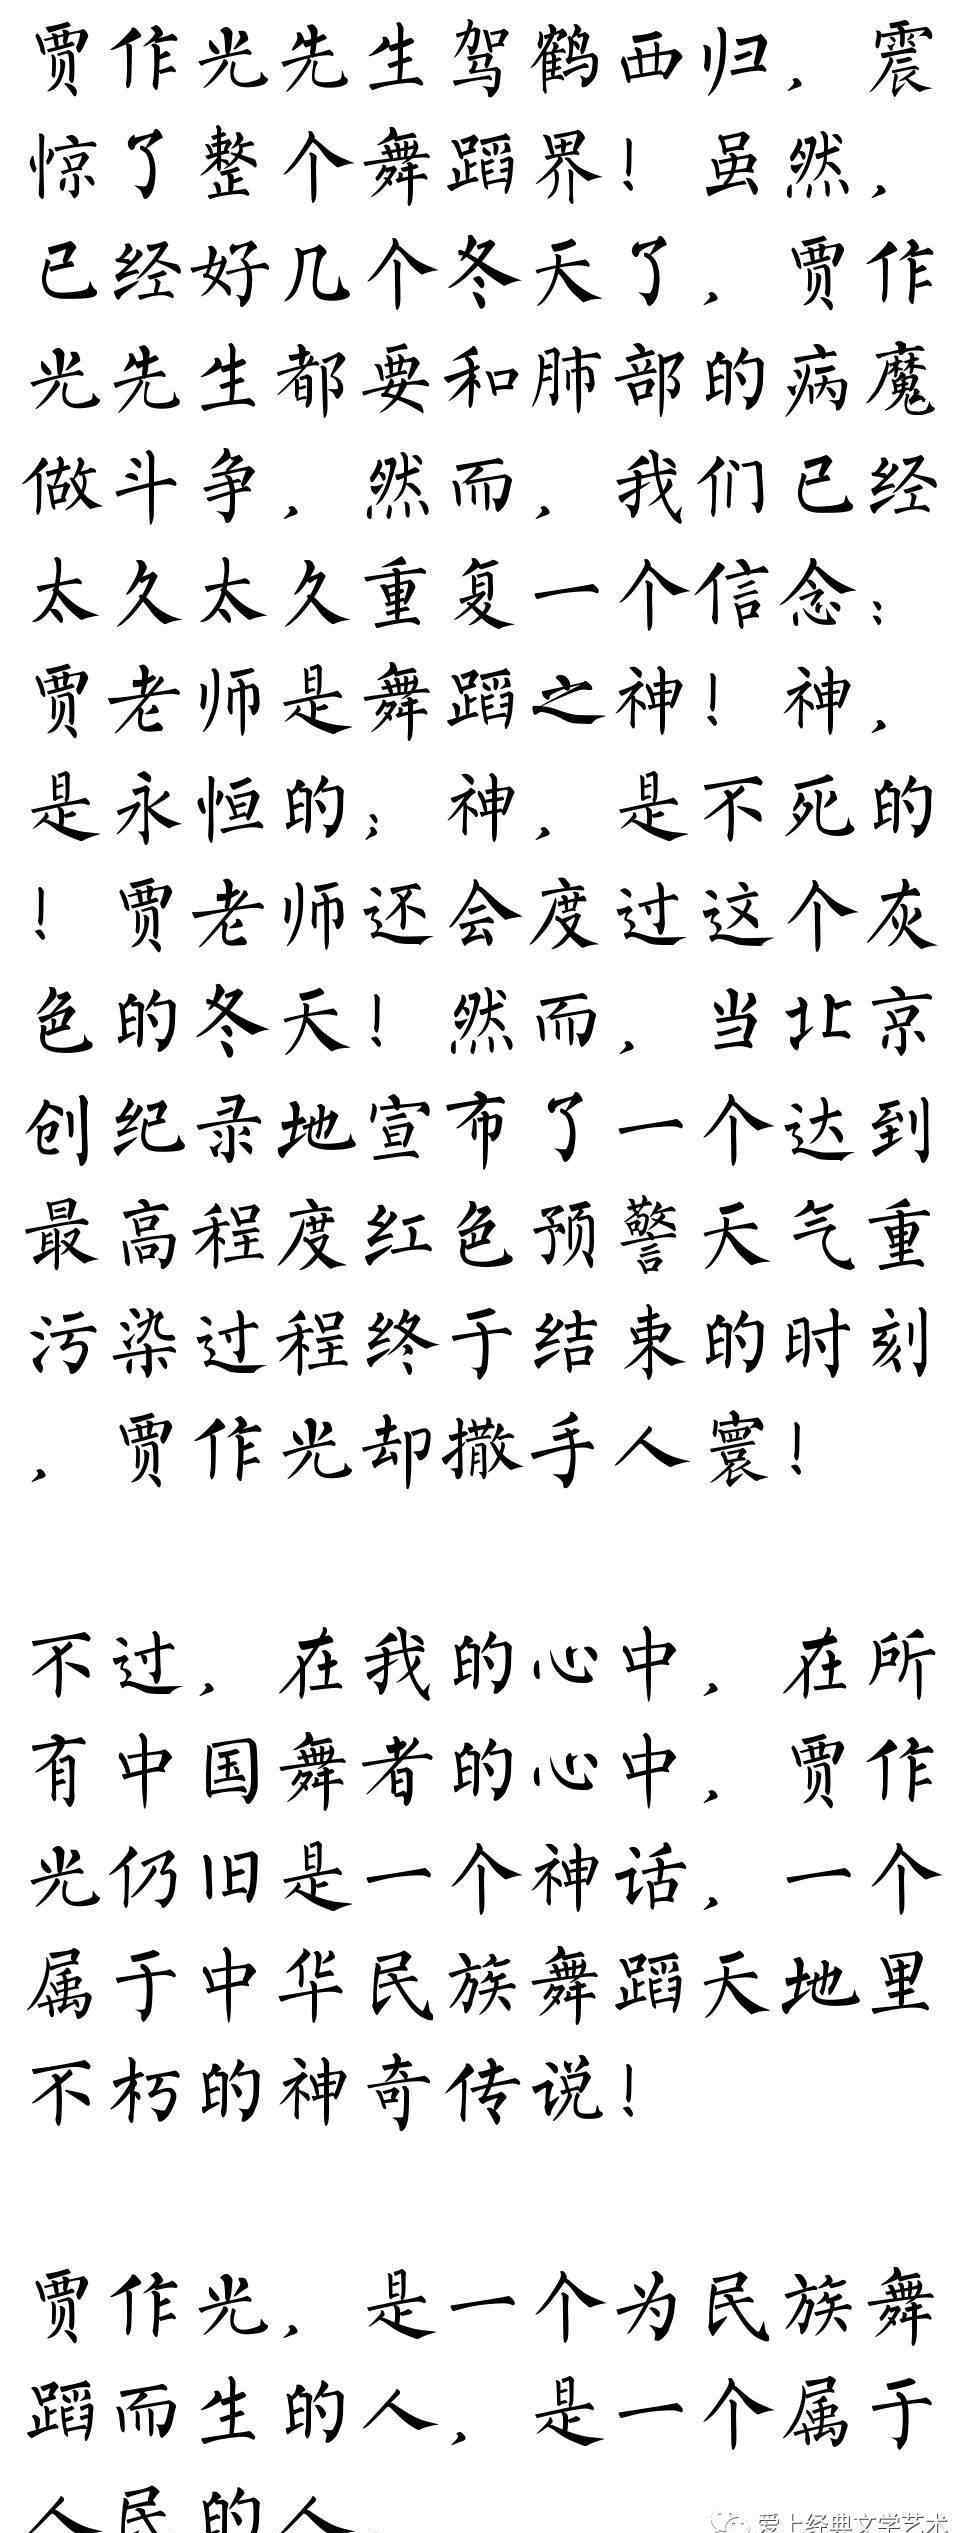 贾作光先生驾鹤西归，震
惊了整个舞蹈界！虽然，
已经好几个冬天了，贾作
光先生都要和肺部的病魔
做斗争，然而，我们已经
太久太久重复一个信念：
贾老师是舞蹈之神！神，
是永恒的；神，是不死的
！贾老师还会度过这个灰
色的冬天！然而，当北京
创纪录地宣布了一个达到
最高程度红色预警天气重
污染过程终于结束的时刻
，贾作光却撒手人寰！
不过，在我的心中，在所
有中国舞者的心中，贾作
光仍旧是一个神话，一个
属于中华民族舞蹈天地里
不朽的神奇传说！
贾作光，是一个为民族舞
蹈而生的人，是一个属于
人民的人
爱上经典文学艺术